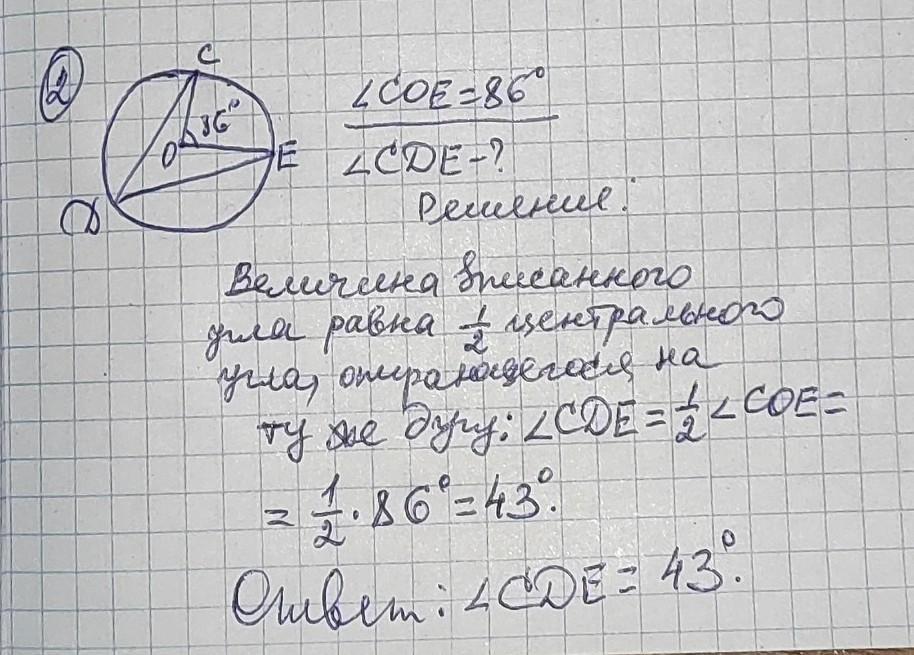 2
C
86°
O
E
D
∠COE=86°
∠CDE-?
Решение:
Величина вписанного
угла равна 1/2 центрального
угла, опирающегося на
ту же дугу: ∠CDE = 1/2 ∠COE =
= 1/2 · 86° = 43°.
Ответ: ∠CDE = 43°.